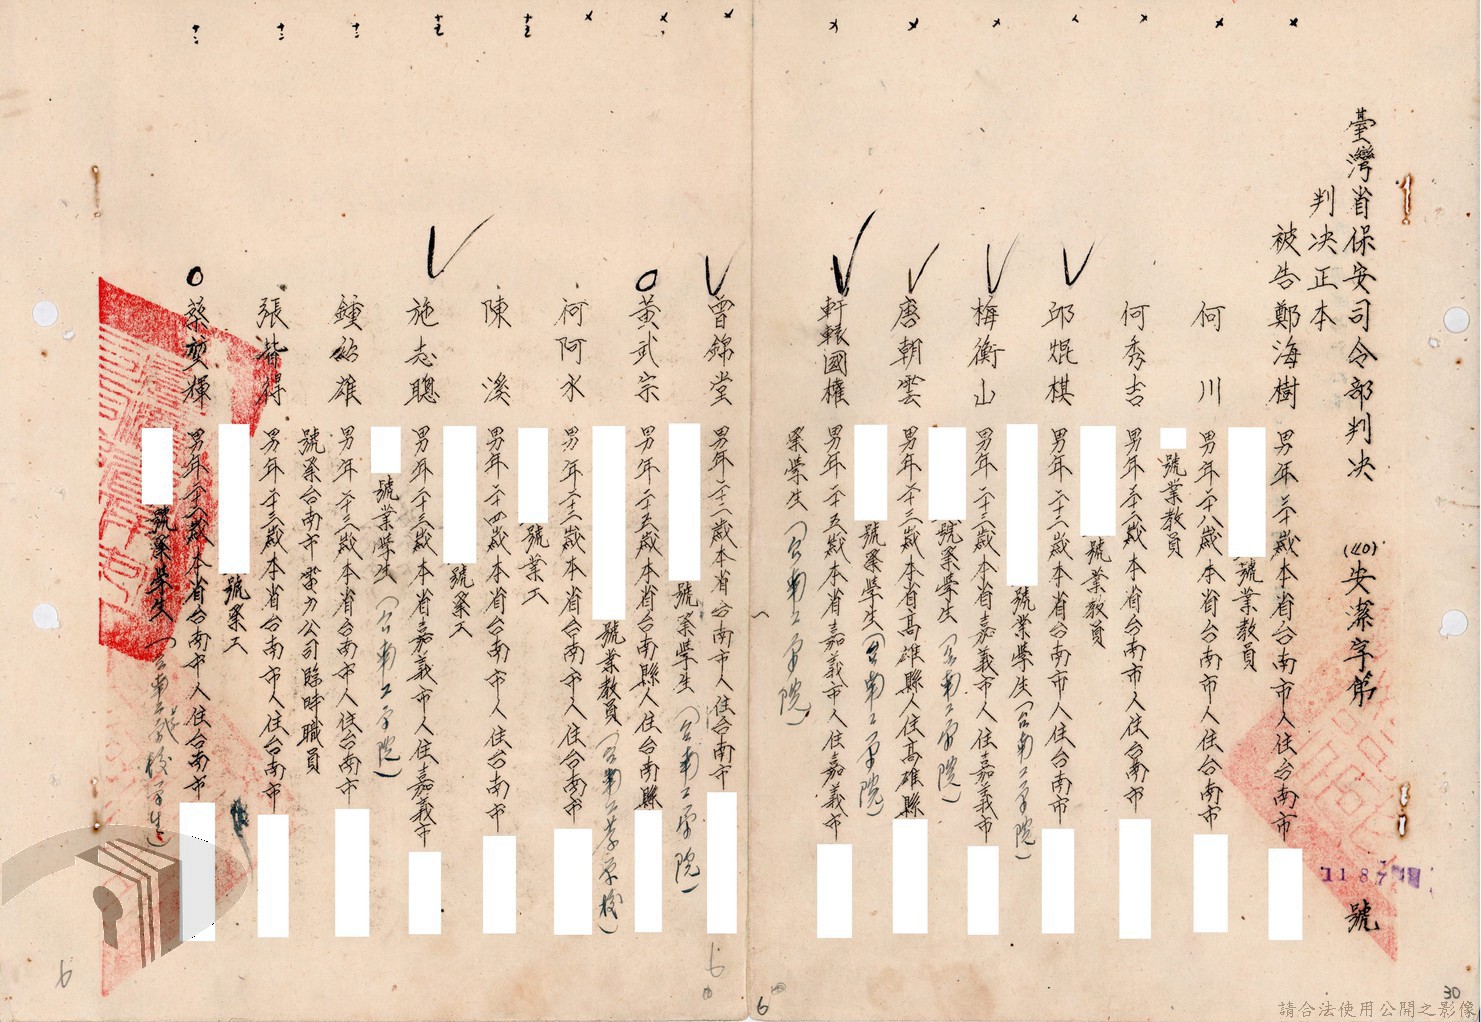 臺灣省保安司令部判决 (40)安潔字第1187號
判决正本
被告鄭海樹 男年三十歲本省台南市人住台南市
號業教員
何川 男年二十八歲本省台南市人住台南市
號業教員
何秀吉 男年二十三歲本省台南市人住台南市
號業教員
邱焜棋 男年二十三歲本省台南市人住台南市
號業學生(台南工學院)
梅衡山 男年二十三歲本省嘉義市人住嘉義市
號業學生(台南工學院)
唐朝雲 男年二十三歲本省高雄縣人住高雄縣
號業學生(台南工學院)
軒轅國權 男年二十五歲本省嘉義市人住嘉義市
業學生(台南工學院)
曾錦堂 男年二十二歲本省台南市人住台南市
號業學生(台南工學院)
黃武宗 男年二十五歲本省台南縣人住台南縣
號業教員(台南工業學校)
何阿水 男年二十三歲本省台南市人住台南市
號業工
陳溪 男年二十四歲本省台南市人住台南市
號業工
施志聰 男年二十三歲本省嘉義市人住嘉義市
號業學生(台南工學院)
鍾紹雄 男年二十三歲本省台南市人住台南市
號業台南市電力公司臨時職員
張得 男年二十三歲本省台南市人住台南市
號業工
蔡輝 男年二十歲本省台南市人住台南市
號業學生(台南工業學校學生)
30
6
請合法使用公開之影像